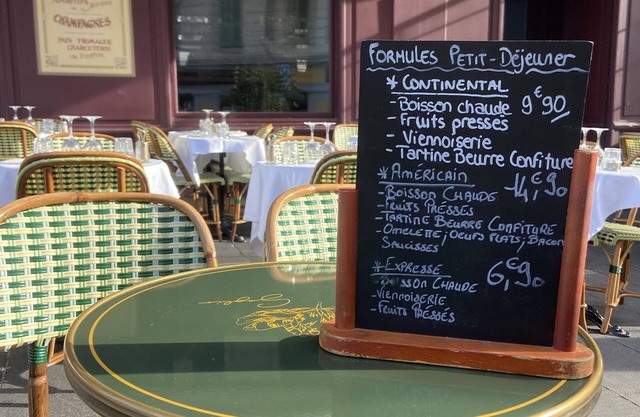 CHAMPAGNES
PAIN FROMAGES
CHARCUTERIE
FORMULES PETIT-DÉJEUNER
* CONTINENTAL
- Boisson chaude 9€90
- Fruits pressés
- Viennoiserie
- Tartine Beurre Confiture
* AMÉRICAIN 14,€90
- BOISSON CHAUDE
- FRUITS PRESSÉS
- TARTINE BEURRE CONFITURE
- OMELETTE, OEUFS PLATS, BACON
SAUCISSES
* EXPRESSE 6,€90
- BOISSON CHAUDE
- VIENNOISERIE
- FRUITS PRESSÉS